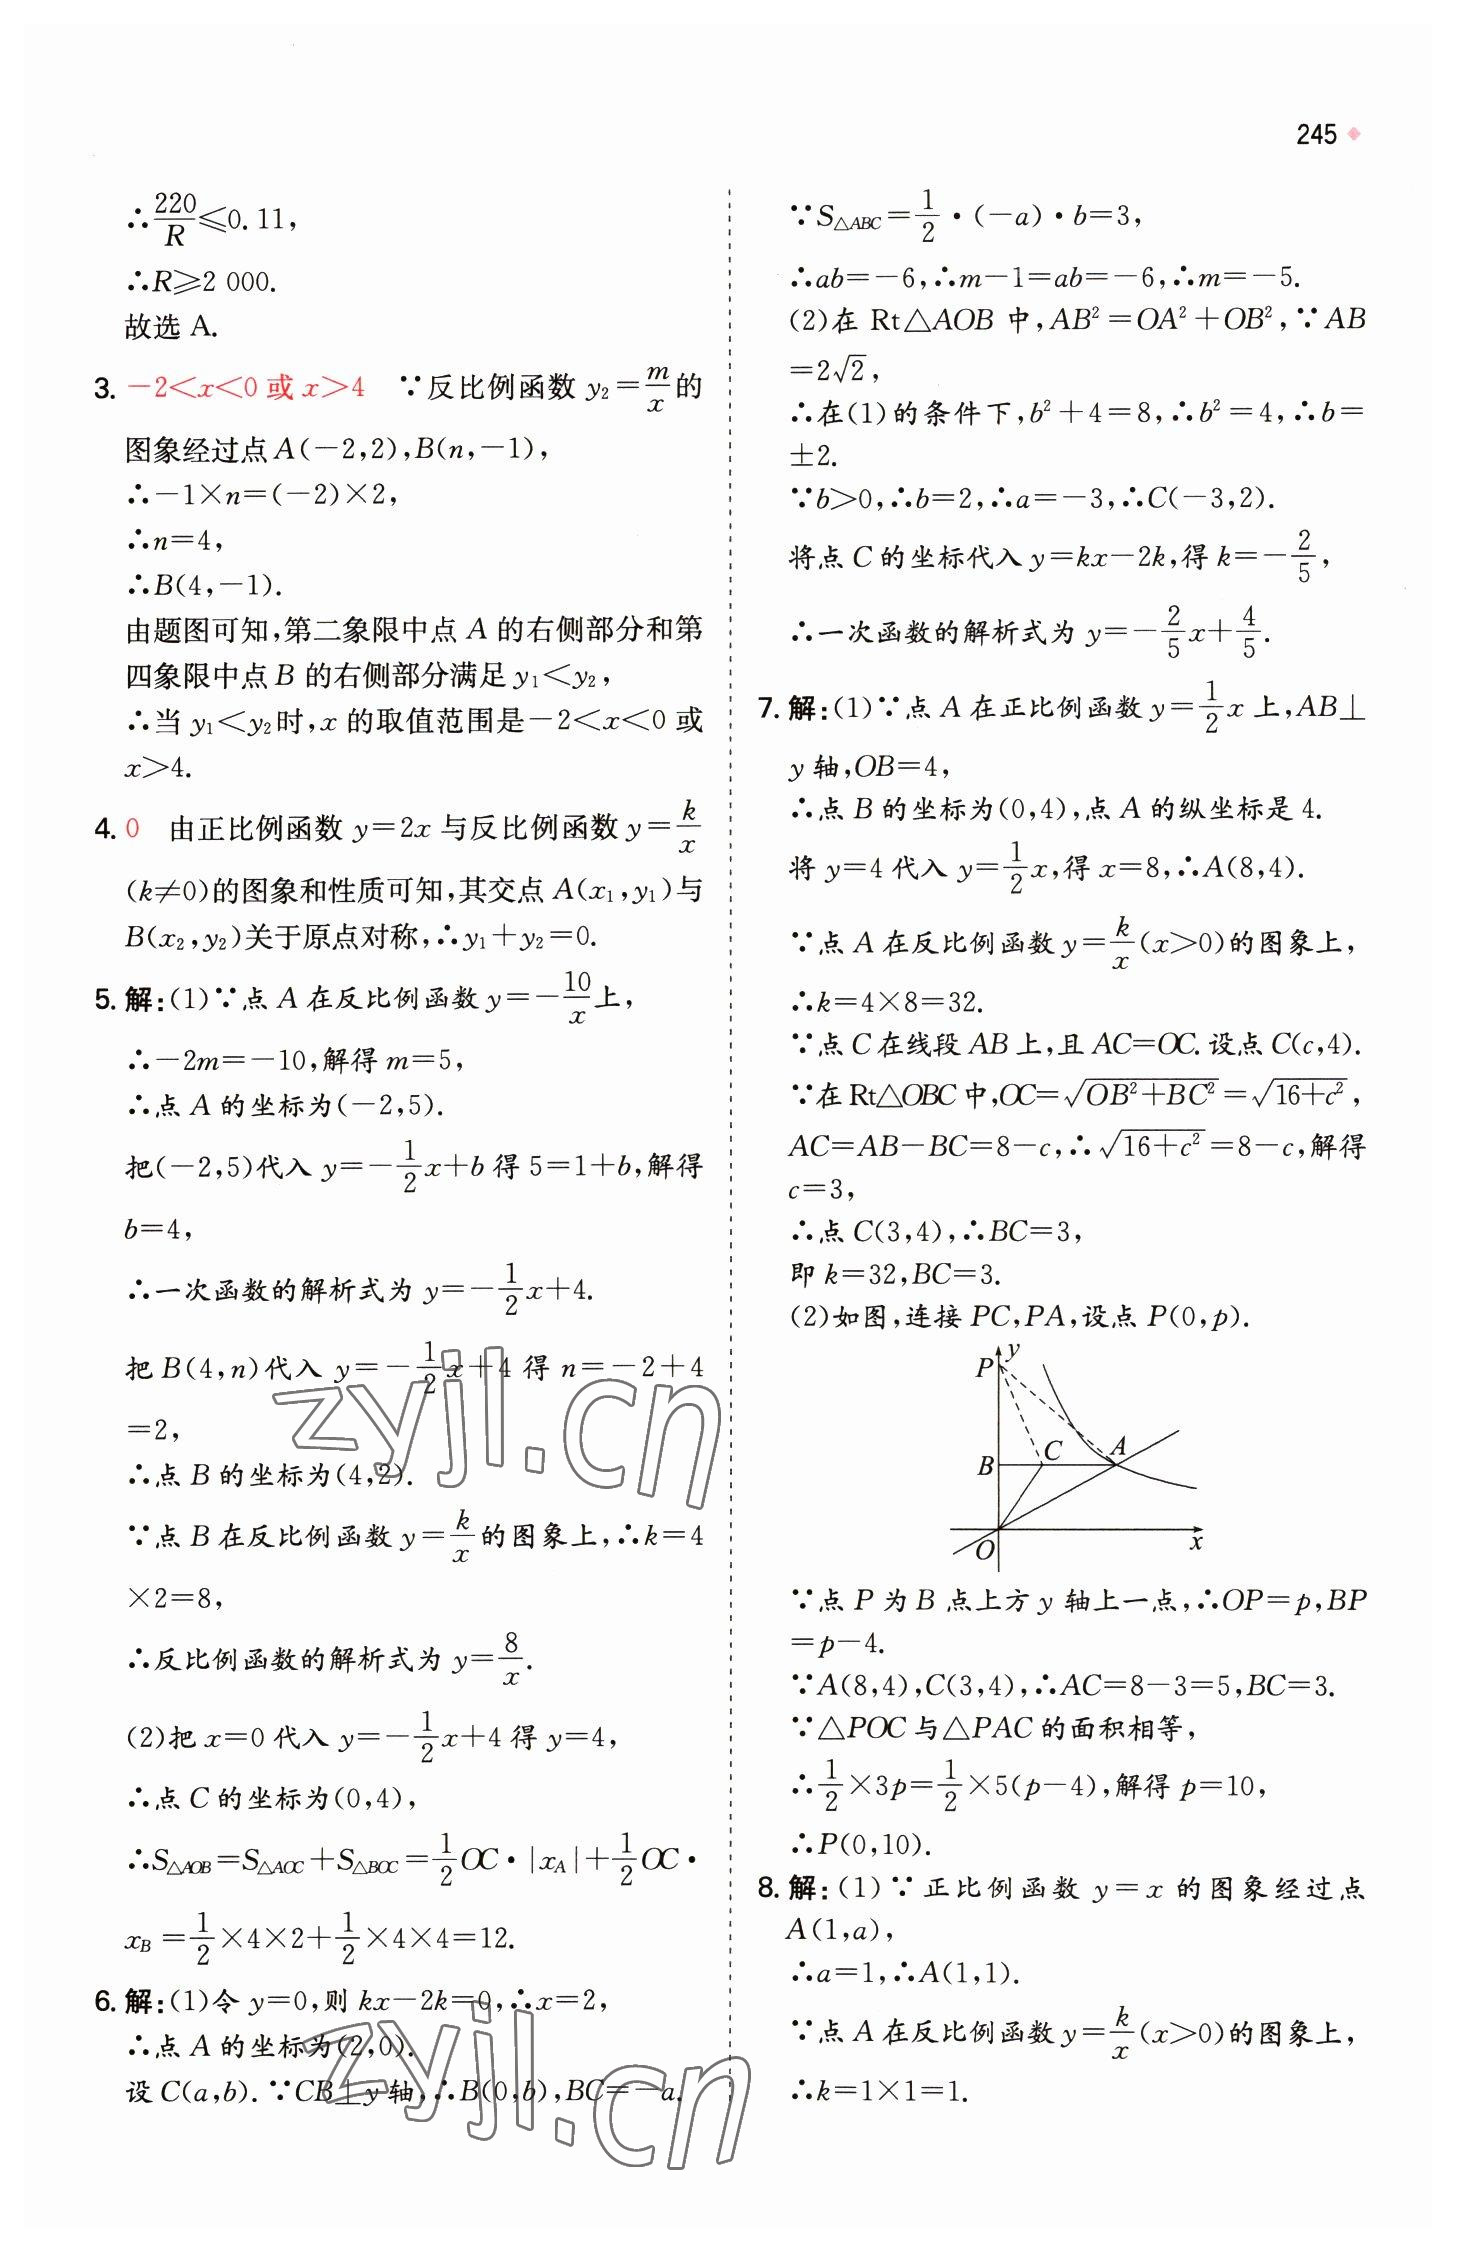 245
∴220/R≤0.11,
∴R≥2 000.
故选 A.
3. －2<x<0 或 x>4 ∵反比例函数 y₂=m/x的
图象经过点 A(－2,2),B(n,－1),
∴－1×n=(－2)×2,
∴n=4,
∴B(4,－1).
由题图可知,第二象限中点 A 的右侧部分和第
四象限中点 B 的右侧部分满足 y₁<y₂,
∴当 y₁<y₂时,x 的取值范围是－2<x<0 或
x>4.
4. 0 由正比例函数 y=2x 与反比例函数 y=k/x
(k≠0)的图象和性质可知,其交点 A(x₁,y₁)与
B(x₂,y₂)关于原点对称,∴y₁+y₂=0.
5. 解:(1)∵点 A 在反比例函数 y=－10/x上,
∴－2m=－10,解得 m=5,
∴点 A 的坐标为(－2,5).
把(－2,5)代入 y=－1/2x+b 得 5=1+b,解得
b=4,
∴一次函数的解析式为 y=－1/2x+4.
把 B(4,n)代入 y=－1/2x+4 得 n=－2+4
=2,
∴点 B 的坐标为(4,2).
∵点 B 在反比例函数 y=k/x的图象上,∴k=4
×2=8,
∴反比例函数的解析式为 y=8/x.
(2)把 x=0 代入 y=－1/2x+4 得 y=4,
∴点 C 的坐标为(0,4),
∴S△AOB=S△AOC+S△BOC=1/2OC·|xA|+1/2OC·
xB=1/2×4×2+1/2×4×4=12.
6. 解:(1)令 y=0,则 kx－2k=0,∴x=2,
∴点 A 的坐标为(2,0).
设 C(a,b).∵CB⊥y 轴,∴B(0,b),BC=－a.
∵S△ABC=1/2·(－a)·b=3,
∴ab=－6,∴m－1=ab=－6,∴m=－5.
(2)在 Rt△AOB 中,AB²=OA²+OB²,∵AB
=2√2,
∴在(1)的条件下,b²+4=8,∴b²=4,∴b=
±2.
∵b>0,∴b=2,∴a=－3,∴C(－3,2).
将点 C 的坐标代入 y=kx－2k,得 k=－2/5,
∴一次函数的解析式为 y=－2/5x+4/5.
7. 解:(1)∵点 A 在正比例函数 y=1/2x 上,AB⊥
y 轴,OB=4,
∴点 B 的坐标为(0,4),点 A 的纵坐标是 4.
将 y=4 代入 y=1/2x,得 x=8,∴A(8,4).
∵点 A 在反比例函数 y=k/x(x>0)的图象上,
∴k=4×8=32.
∵点 C 在线段 AB 上,且 AC=OC.设点 C(c,4).
∵在 Rt△OBC 中,OC=√(OB²+BC²)=√(16+c²),
AC=AB－BC=8－c,∴√(16+c²)=8－c,解得
c=3,
∴点 C(3,4),∴BC=3,
即 k=32,BC=3.
(2)如图,连接 PC,PA,设点 P(0,p).
P y
B C A
O x
∵点 P 为 B 点上方 y 轴上一点,∴OP=p,BP
=p－4.
∵A(8,4),C(3,4),∴AC=8－3=5,BC=3.
∵△POC 与△PAC 的面积相等,
∴1/2×3p=1/2×5(p－4),解得 p=10,
∴P(0,10).
8. 解:(1)∵正比例函数 y=x 的图象经过点
A(1,a),
∴a=1,∴A(1,1).
∵点 A 在反比例函数 y=k/x(x>0)的图象上,
∴k=1×1=1.
zyjl.cn
zyjl.cn